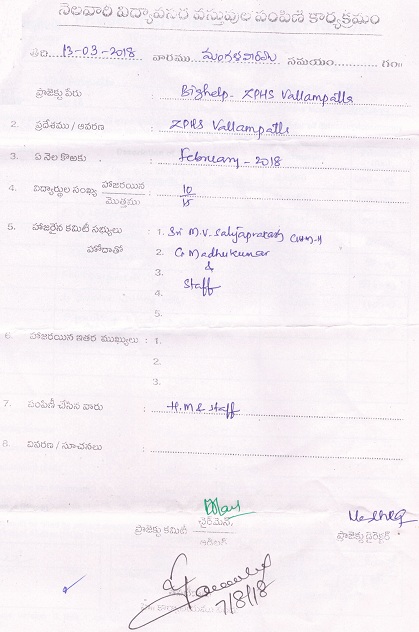 నెలవారి విద్యావసర వస్తువుల పంపిణి కార్యక్రమం
తేది 13-03-2018 వారము మంగళవారము సమయం............ గం॥
ప్రాజెక్టు పేరు : Bighelp- ZPHS Vallampatla
2. ప్రదేశము / ఆవరణ : ZPHS Vallampatla
3. ఏ నెల కొఱకు : February - 2018
4. విద్యార్థుల సంఖ్య హాజరయిన / మొత్తము : 10/15
5. హాజరైన కమిటీ సభ్యులు : 1. Sri M.V. Satyaprakash
హోదాతో 2. G Madhukumar
3. &
4. Staff
5.
6. హాజరయిన ఇతర ముఖ్యులు : 1.
2.
3.
7. పంపిణీ చేసిన వారు : H.M & Staff
8. వివరణ / సూచనలు :
ప్రాజెక్టు కమిటీ ఛైర్మెన్ ప్రాజెక్టు డైరెక్టర్
7/8/18